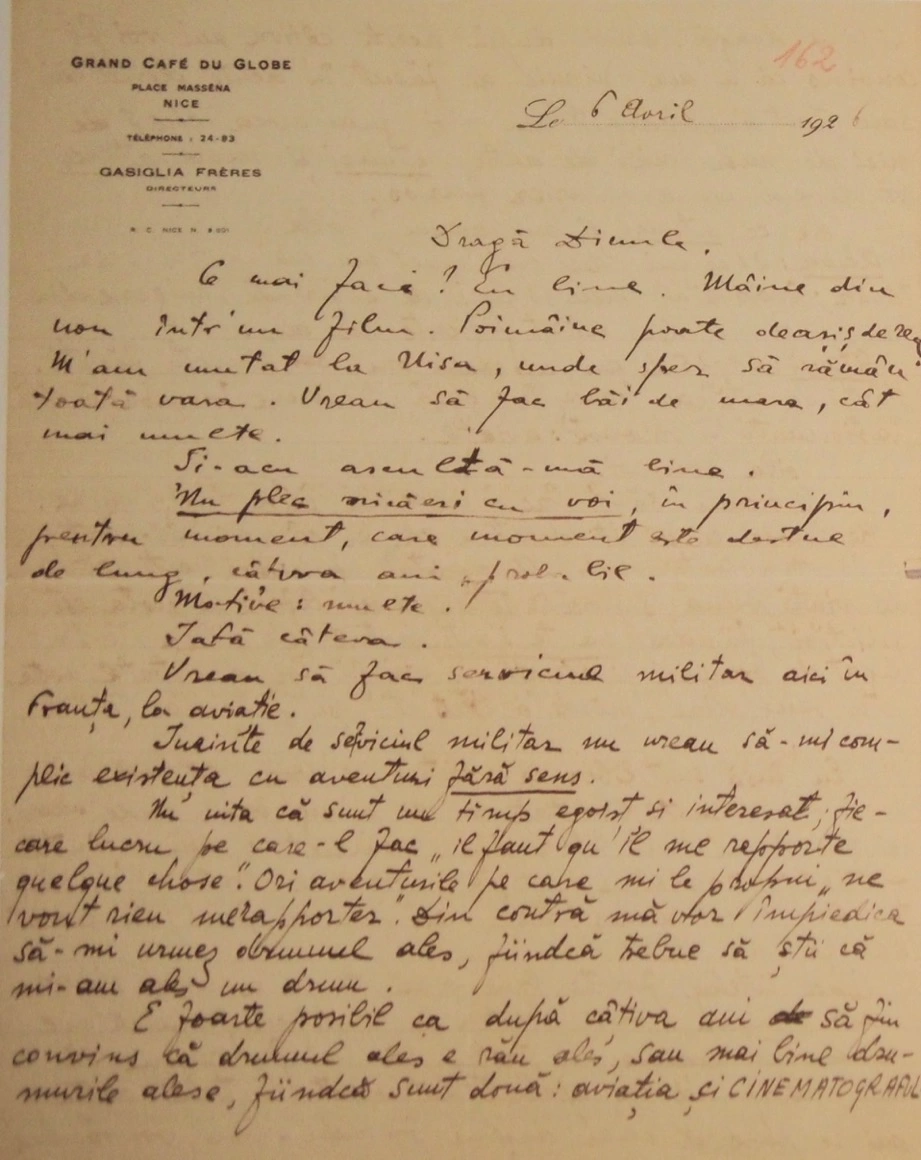 162
GRAND CAFÉ DU GLOBE
PLACE MASSÉNA
NICE
TÉLÉPHONE : 24-83
GASIGLIA FRÈRES
DIRECTEURS
R. C. NICE N.
Le 6 Avril 1926
Dragă
Ce mai faci? Eu bine. Mâine din
nou într'un film. Poimâine poate
M'am mutat la Nisa, unde sper să rămân
toată vara. Vreau să fac băi de mare, cât
mai multe.
Și-acu ascultă-mă bine.
Nu plec nicăeri cu voi, în principiu,
pentru moment, care moment este destul
de lung, câțiva ani probabil.
Motive: multe.
Iată câteva.
Vreau să fac serviciul militar aici în
Franța, la aviație.
Inainte de serviciul militar nu vreau să-mi com-
plic existența cu aventuri fără sens.
Nu uita că sunt un timp egoist și interesat, fie-
care lucru pe care-l fac „il faut qu'il me rapporte
quelque chose". Ori aventurile pe care mi le propui „ne
vont rien me rapporter". Din contră mă vor împiedica
să-mi urmez drumul ales, fiindcă trebue să știi că
mi-am ales un drum.
E foarte posibil ca după câțiva ani să fiu
convins că drumul ales e rău ales, sau mai bine dru-
murile alese, fiindcă sunt două: aviația și CINEMATOGRAFUL